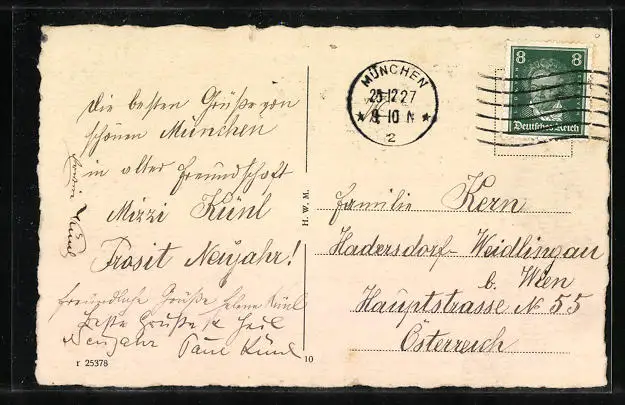 die besten Grüße von
schönen München
in alter Freundschaft
Mizzi Künl
Prosit Neujahr!
freundliche Grüße Helene Künl
beste Grüße & Heil
Neujahr Paul Künl
Künl
r 25378
10
H. W. M.
MÜNCHEN
12 27
10 N
2
8 8
Deutsches Reich
Familie Kern
Hadersdorf-Weidlingau
b. Wien
Hauptstrasse № 55
Österreich